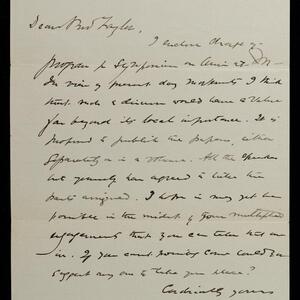 Dear Prof Taylor,
I enclose draft of
program for Symposium on
In view of present day movements I think
that such a discussion would have a value
far beyond its local importance. It is
proposed to publish the papers, either
separately or in a volume. All the speakers
but yourself have agreed to take the
parts assigned. I hope it may yet be
possible in the midst of your multiplied
engagements that you can take part
in. If you cannot possibly come could you
suggest any one to take your place?
Cordially yours